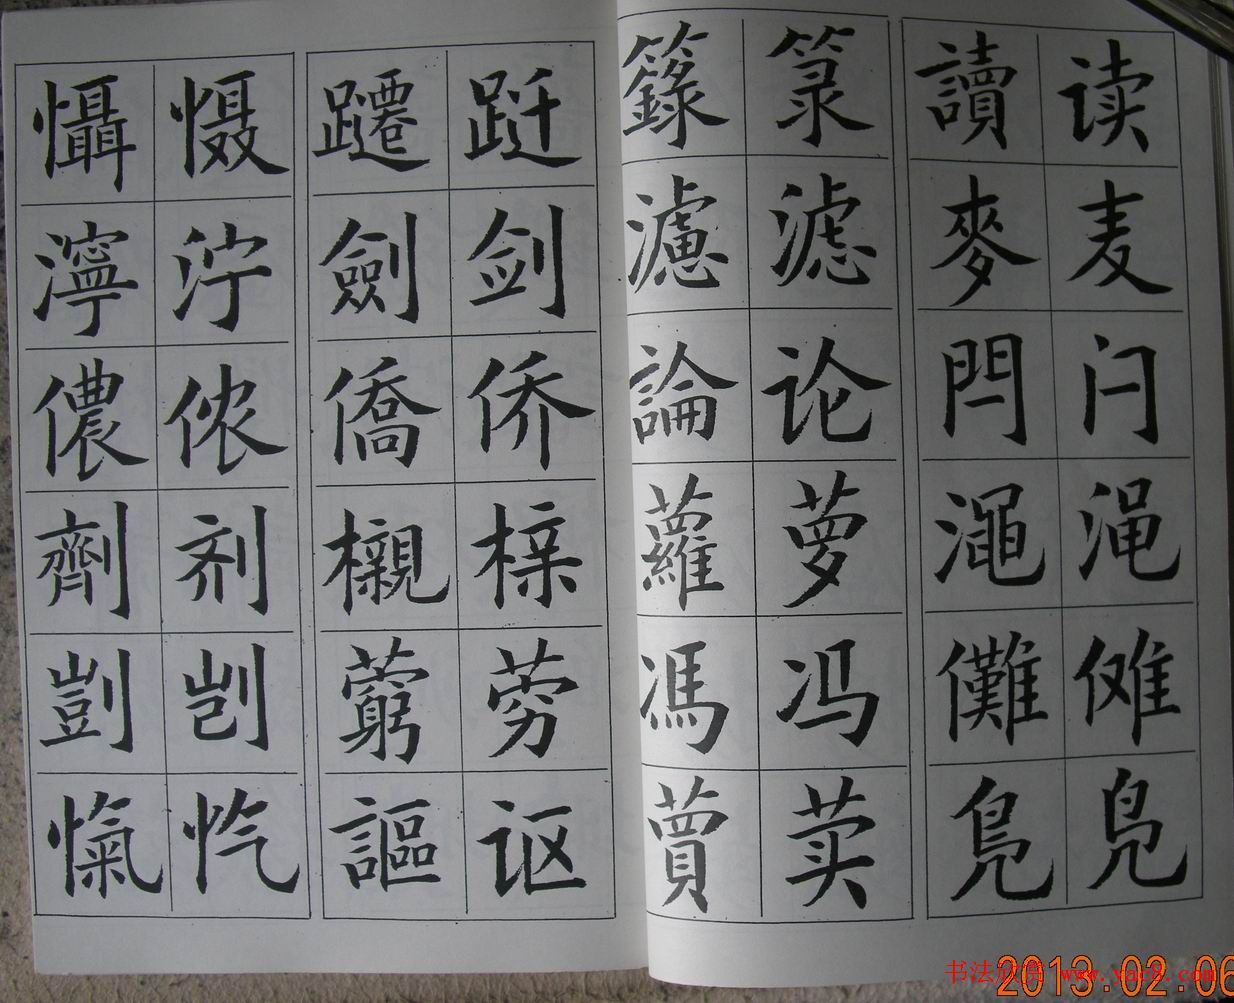 懾 慑 躚 跹
濘 泞 劍 剑
儂 侬 僑 侨
劑 剂 櫬 榇
剴 剀 藭 䓖
愾 忾 謳 讴
籙 箓 讀 读
濾 滤 麥 麦
論 论 閂 闩
蘿 萝 澠 渑
馮 冯 儺 傩
蕒 荬 鳧 凫
书法欣赏 www.yac8.com
2013.02.06